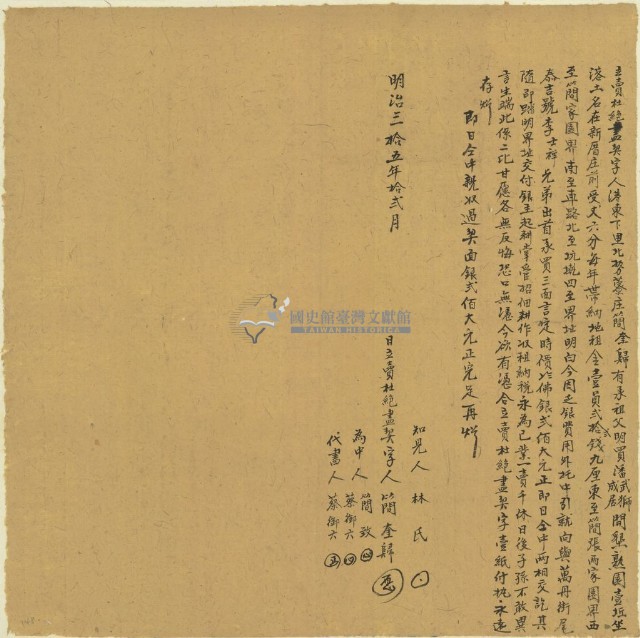 立賣杜絕盡契字人港東下里北勢藔庄簡奎歸有承祖父明買潘武獅成居開墾熟園壹坵坐
落土名在新厝庄前受丈六分每年帶納地租金壹員弍拾弍錢九厘東至簡張兩家園界西
至簡家園界南至車路北至坑墘四至界址明白今因乏銀費用外托中引就向與萬丹街尾
泰吉號李士祥兄弟出首承買三面言定時價佛銀弍佰大元正即日仝中兩相交訖其
隨即踏明界址交付銀主起耕掌管招佃耕作收租納稅永為己業一賣千休日後子孫不敢異
言生端此係二比甘愿各無反悔恐口無憑今欲有憑合立賣杜絕盡契字壹紙付執永遠
存炤
即日仝中親收過契面銀弍佰大元正完足再炤
明治三拾五年拾弍月
日立賣杜絕盡契字人簡奎歸
知見人林氏
為中人簡致
蔡衛六
代書人蔡衛六
國史館臺灣文獻館
TAIWAN HISTORICA